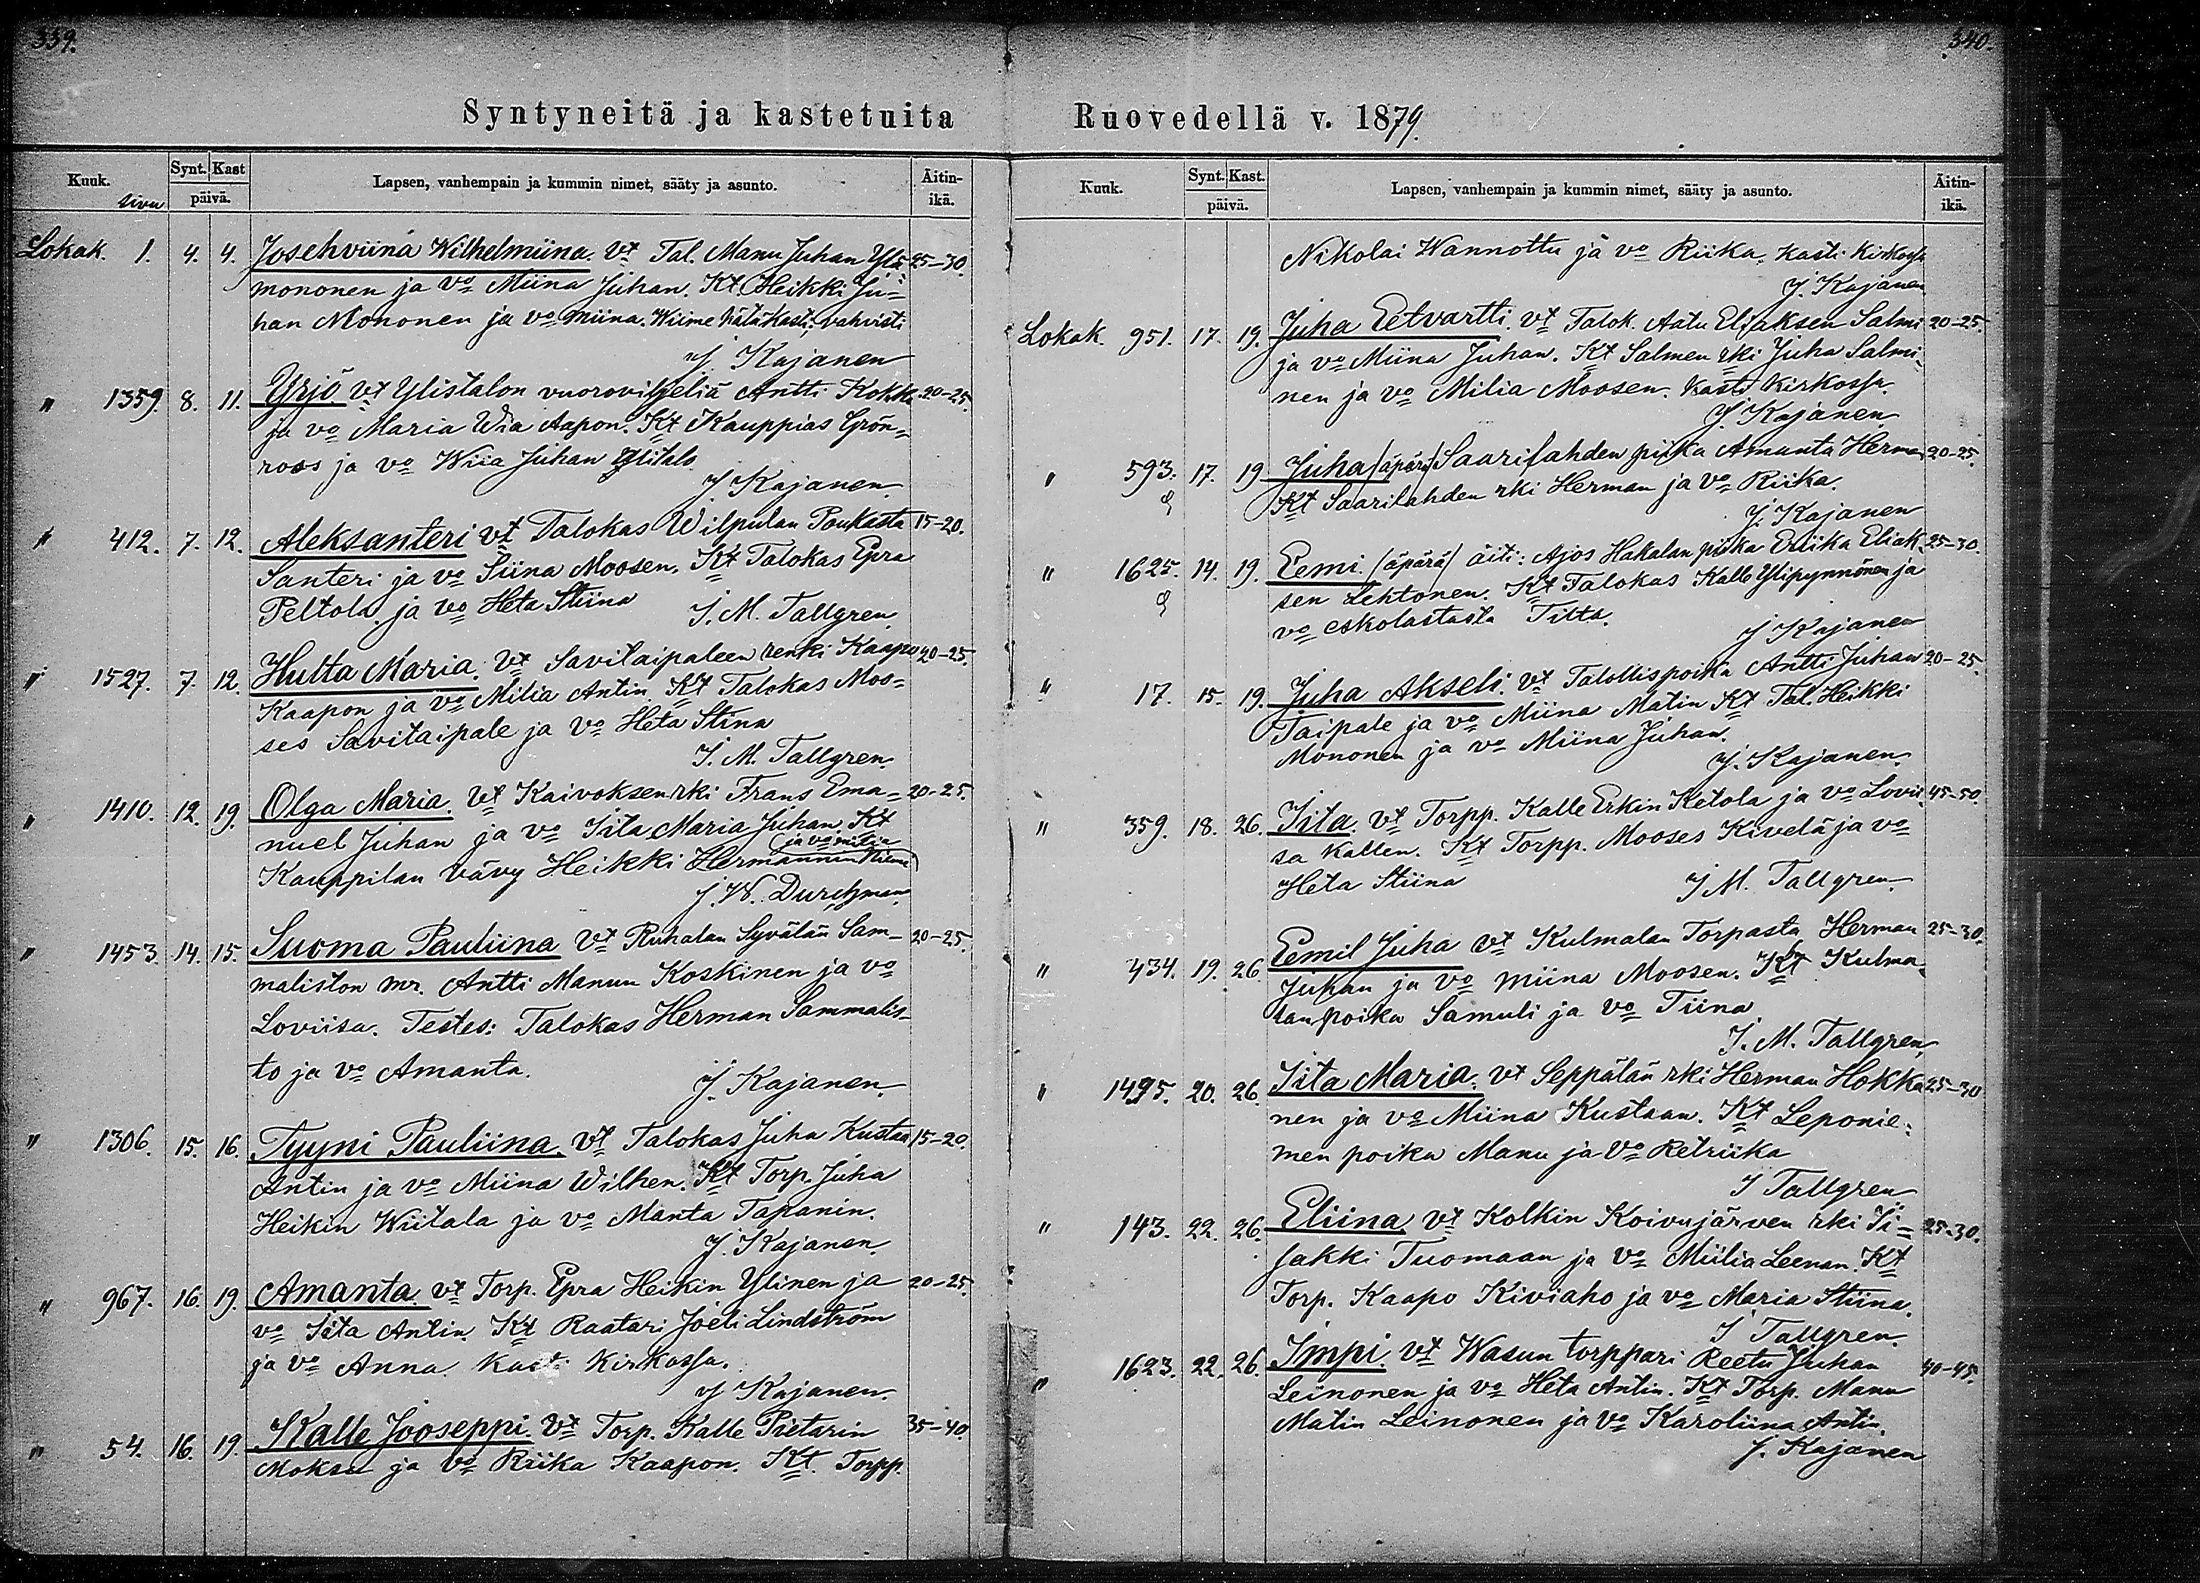 339.
Syntyneitä ja kastetuita
Kuuk. sivu
Synt. Kast
päivä.
Lapsen, vanhempain ja kummin nimet, sääty ja asunto.
Äitin-
ikä.
Lokak. 1. 4. 4. Josehviina Wilhelmiina. vt Tal. Manu Juhan Yli= 25-30.
mononen ja vo Miina Juhan. Kt. Heikki Ju=
han Mononen ja vo Miina. Wiime hätäkasti, vahvisti
J. Kajanen
" 1359. 8. 11. Yrjö vt Ylistalon vuoroviljeliä Antti Kokko 20-25.
ja vo Maria Wia Aapon. Kt Kauppias Grön=
roos ja vo Wiia Juhan Ylitalo
J Kajanen.
" 412. 7. 12. Aleksanteri vt Talokas Wilpulan Poukasta 15-20.
Santeri ja vo Siina Moosen. Kt Talokas Epra
Peltola ja vo Heta Stiina
J. M. Tallgren.
" 1527. 7. 12. Hulta Maria. vt Savitaipaleen renki Kaapo 20-25.
Kaapon ja vo Milia Antin. Kt Talokas Moo=
ses Savitaipale ja vo Heta Stina
J. M. Tallgren.
" 1410. 12. 19. Olga Maria. vt Kaivoksen rki Frans Ema= 20-25.
nuel Juhan ja vo Iita Maria Juhan. Kt
ja vo Milia
Kauppilan vävy Heikki Hermannin Niemi
J. W. Durchman.
" 1453. 14. 15. Suoma Pauliina vt Ruhalan Syvälän Sam- 20-25.
maliston mr. Antti Manun Koskinen ja vo
Loviisa. Testes: Talokas Herman Sammalis-
to ja vo Amanta.
J. Kajanen.
" 1306. 15. 16. Tyyni Pauliina. vt Talokas Juha Kustaa 15-20.
Antin ja vo Miina Wilhen. Kt Torp. Juha
Heikin Wiitala ja vo Manta Tapanin.
J. Kajanen.
" 967. 16. 19. Amanta. vt Torp. Epra Heikin Ylinen ja 20-25.
vo Iita Antin. Kt Raatari Joeli Lindström
ja vo Anna. Kasti Kirkossa.
J Kajanen.
" 54. 16. 19. Kalle Jooseppi. vt Torp. Kalle Pietarin 35-40.
Moksu ja vo Riika Kaapon. Kt. Torpp.
340.
Ruovedellä v. 1879.
Kuuk.
Synt. Kast.
päivä.
Lapsen, vanhempain ja kummin nimet, sääty ja asunto.
Äitin-
ikä.
Nikolai Wannottu ja vo Riika. Kasti Kirkossa
J. Kajanen
Lokak. 951. 17. 19. Juha Eetvartti. vt Talok. Aatu Eliaksen Salmi 20-25.
ja vo Miina Juhan. Kt Salmen rki Juha Salmi=
nen ja vo Milia Moosen. Kasti Kirkossa.
J. Kajanen.
" 593. 17. 19 Juha (äpärä) Saarilahden piika Amanta Herman 20-25.
Kt Saarilahden rki Herman ja vo Riika.
J. Kajanen
" 1625. 14. 19. Eemi. (äpärä) äiti: Ajos Hakalan piika Eriika Eliak= 25-30.
sen Lehtonen. Kt Talokas Kalle Ylipynnönen ja
vo Tilta.
J Kajanen
" 17. 15. 19. Juha Akseli. vt Talollispoika Antti Juhan 20-25.
Taipale ja vo Miina Matin Kt Tal. Heikki
Mononen ja vo Miina Juhan.
J. Kajanen.
" 359. 18. 26. Iita. vt Torpp. Kalle Erkin Ketola ja vo Lovii= 45-50.
sa Kallen. Kt Torpp. Mooses Kivelä ja vo
Heta Stiina
J M. Tallgren.
" 434. 19. 26. Eemil Juha vt Kulmalan Torpasta Herman 25-30.
Juhan ja vo Miina Moosen. Kt Kulma=
lan poika Samuli ja vo Tiina.
J. M. Tallgren.
" 1495. 20. 26. Iita Maria. vt Seppälän rki Herman Hokka= 25-30
nen ja vo Miina Kustaan. Kt Leponie=
men poika Manu ja vo Retriika
J Tallgren
" 143. 22. 26. Eliina vt Kolkin Koivujärven rki Ii= 25-30.
sakki Tuomaan ja vo Miilia Leenan. Kt
Torp. Kaapo Kiviaho ja vo Maria Stiina.
J Tallgren.
" 1623. 22. 26. Impi. vt Wasun torppari Reetu Juhan 40-45.
Leinonen ja vo Heta Antin. Kt Torp. Manu
Matin Leinonen ja vo Karoliina Antin.
J. Kajanen